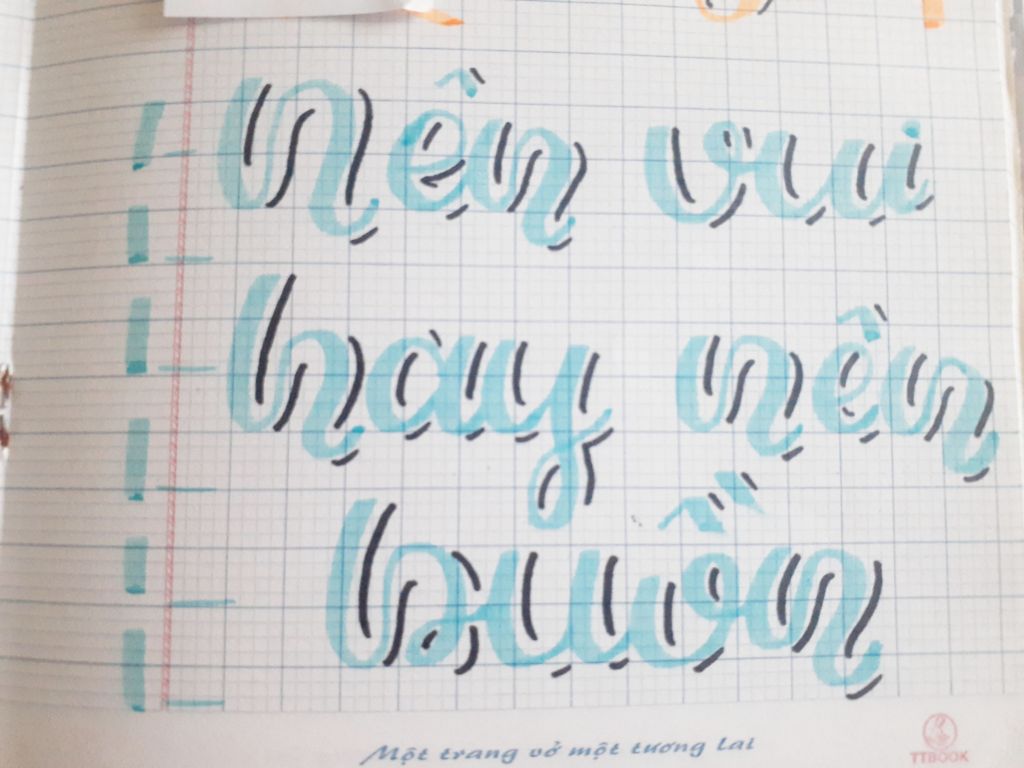 Nên vui
hay nên
buồn
Một trang vở một tương lai
TTBOOK